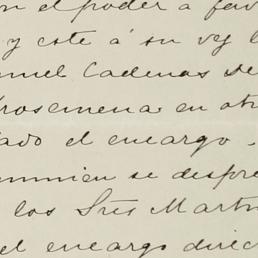 el poder á fav
y este á su vez l
nuel Cadenas de
rosemena en otr
ado el encargo.
se despre
los Sres Mart
el encargo direc